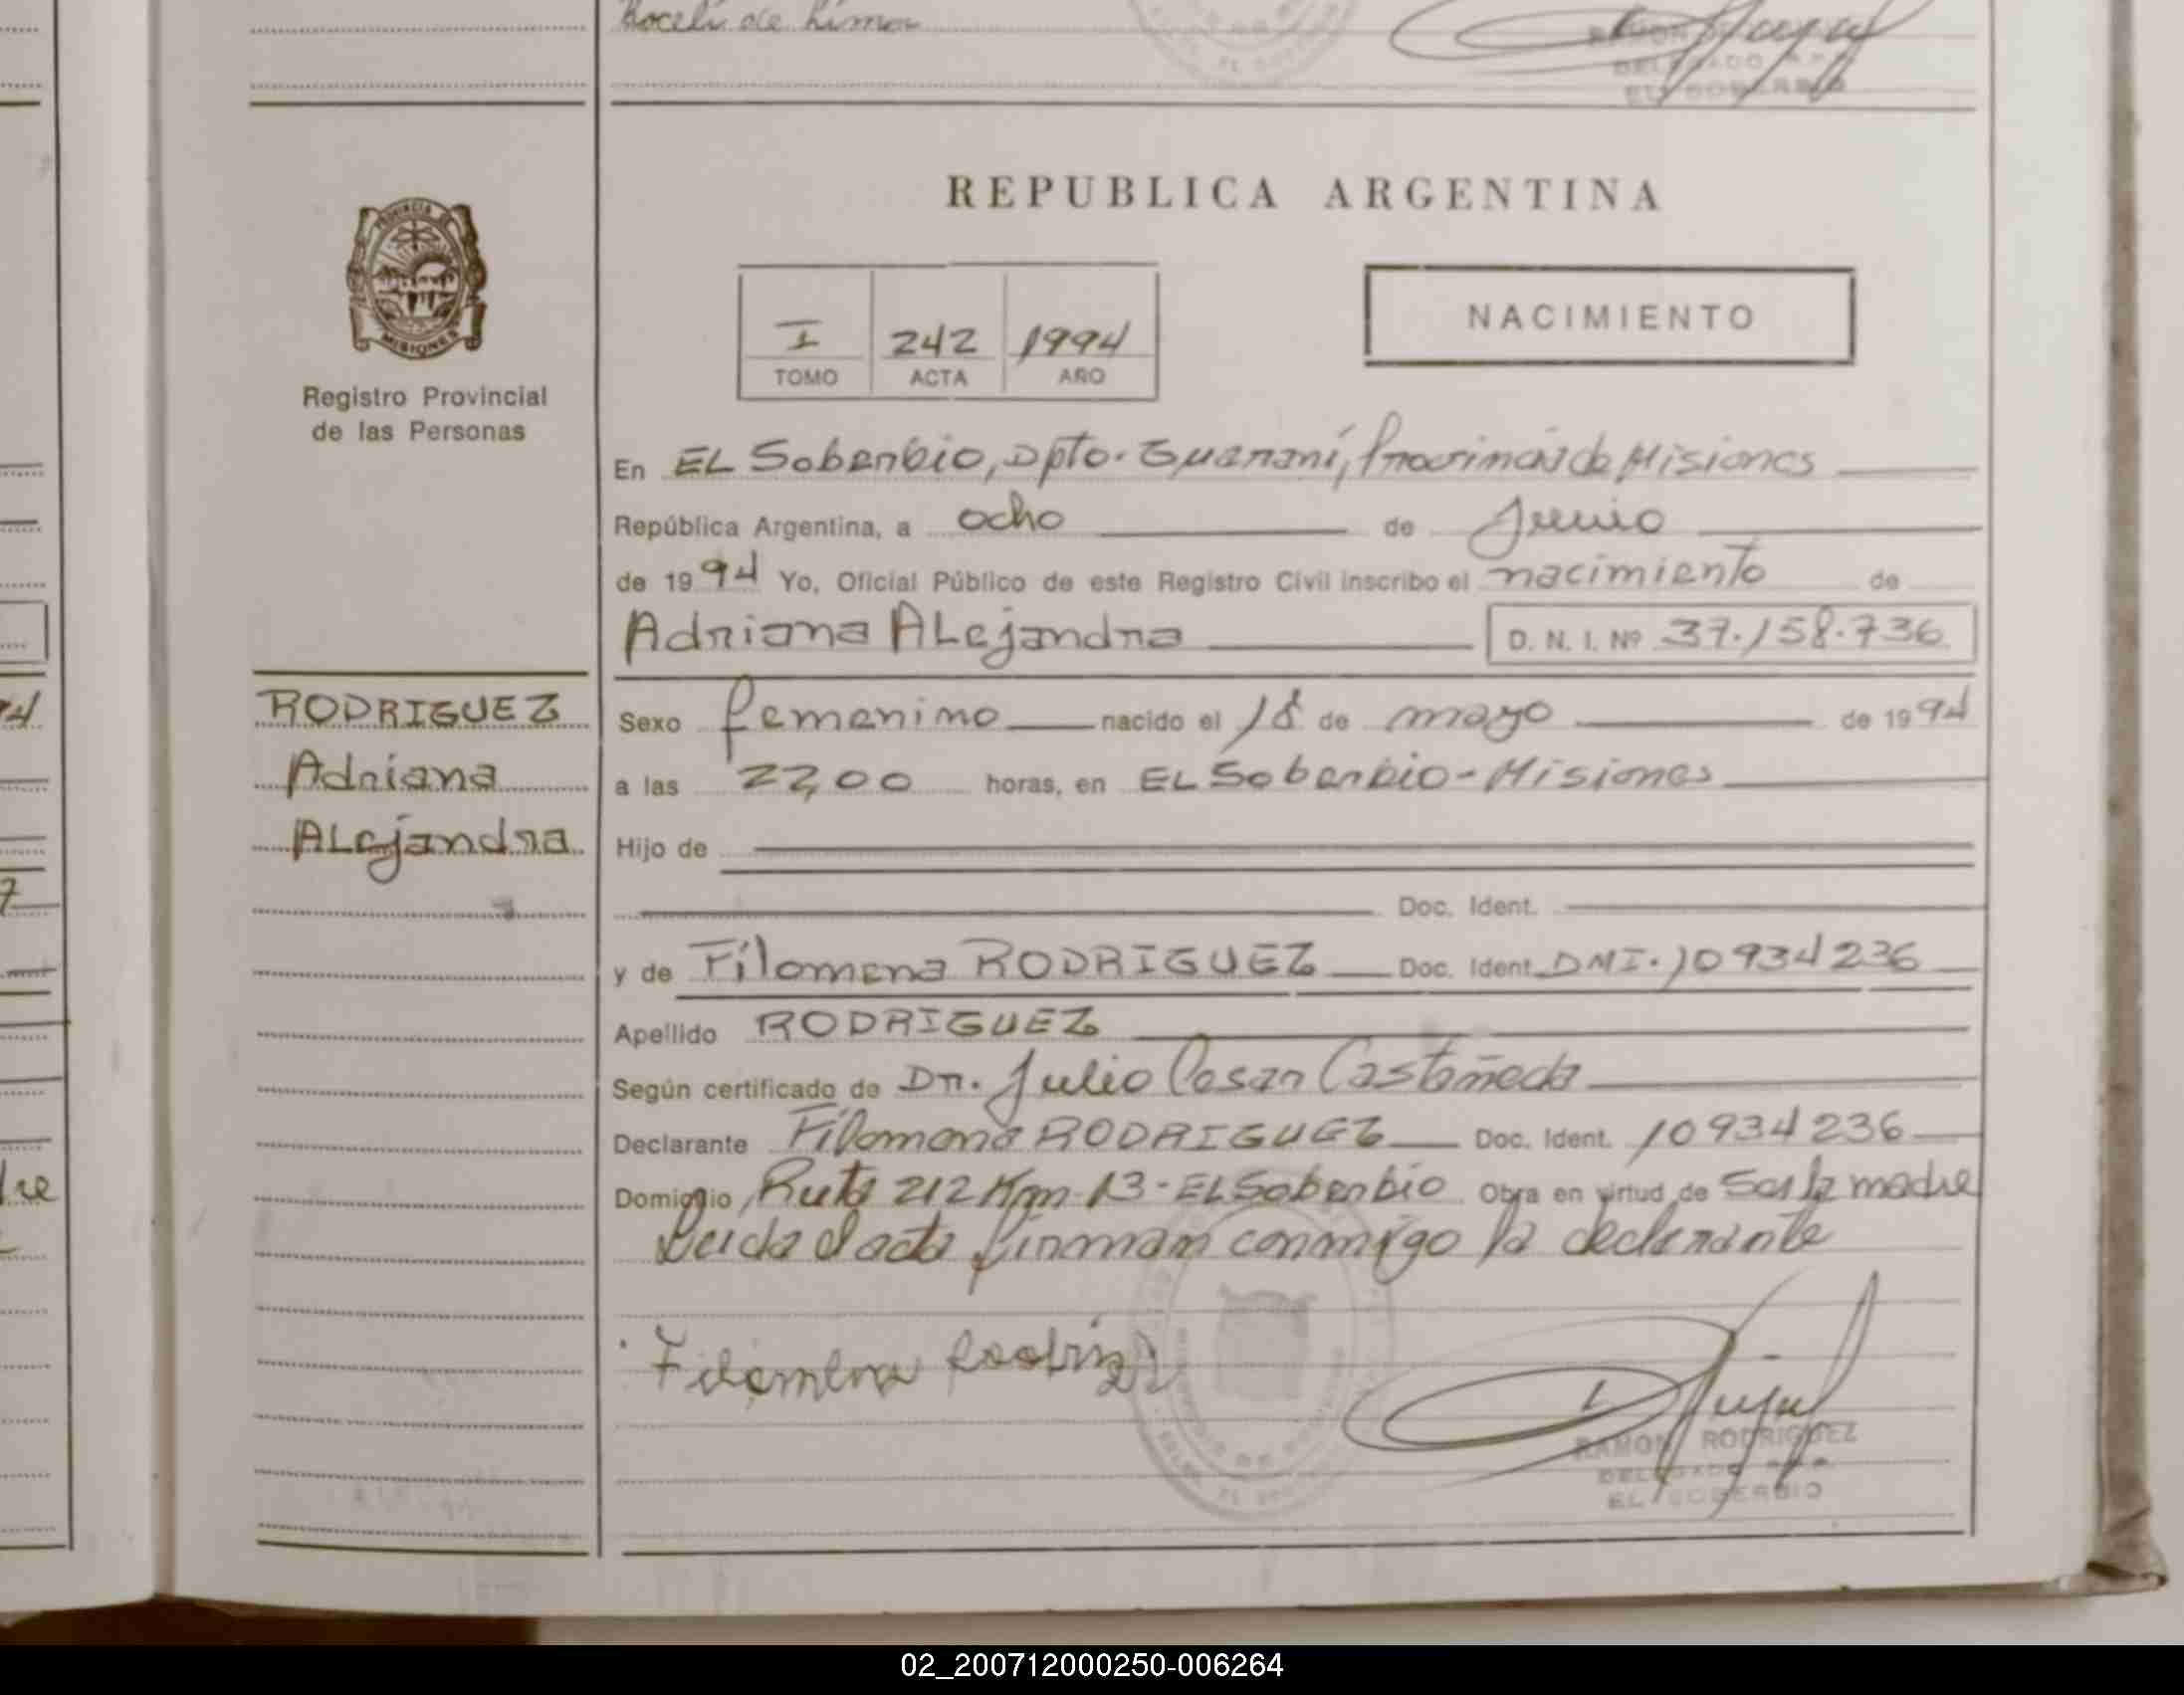 Roceli de Lima
EL SOBERBIO
REPUBLICA ARGENTINA
PROVINCIA DE
MISIONES
Registro Provincial
de las Personas
NACIMIENTO
I 242 1994
TOMO ACTA AÑO
En EL Soberbio, Dpto. Guaraní, Provincia de Misiones
República Argentina, a ocho de Junio
de 1994 Yo, Oficial Público de este Registro Civil inscribo el nacimiento de
Adriana ALejandra D. N. I. Nº 37.158.736
RODRIGUEZ
Adriana
ALejandra
Sexo femenino nacido el 18 de mayo de 1994
a las 22,00 horas, en EL Soberbio - Misiones
Hijo de
Doc. Ident.
y de Filomena RODRIGUEZ Doc. Ident. DNI. 10934236
Apellido RODRIGUEZ
Según certificado de Dr. Julio Cesar Castañeda
Declarante Filomena RODRIGUEZ Doc. Ident. 10934236
Domicilio Ruta 212 Km 13 - EL Soberbio Obra en virtud de Ser la madre
Leida el acta firman conmigo la declarante
RAMON RODRIGUEZ
DELEGADO
EL SOBERBIO
02_200712000250-006264